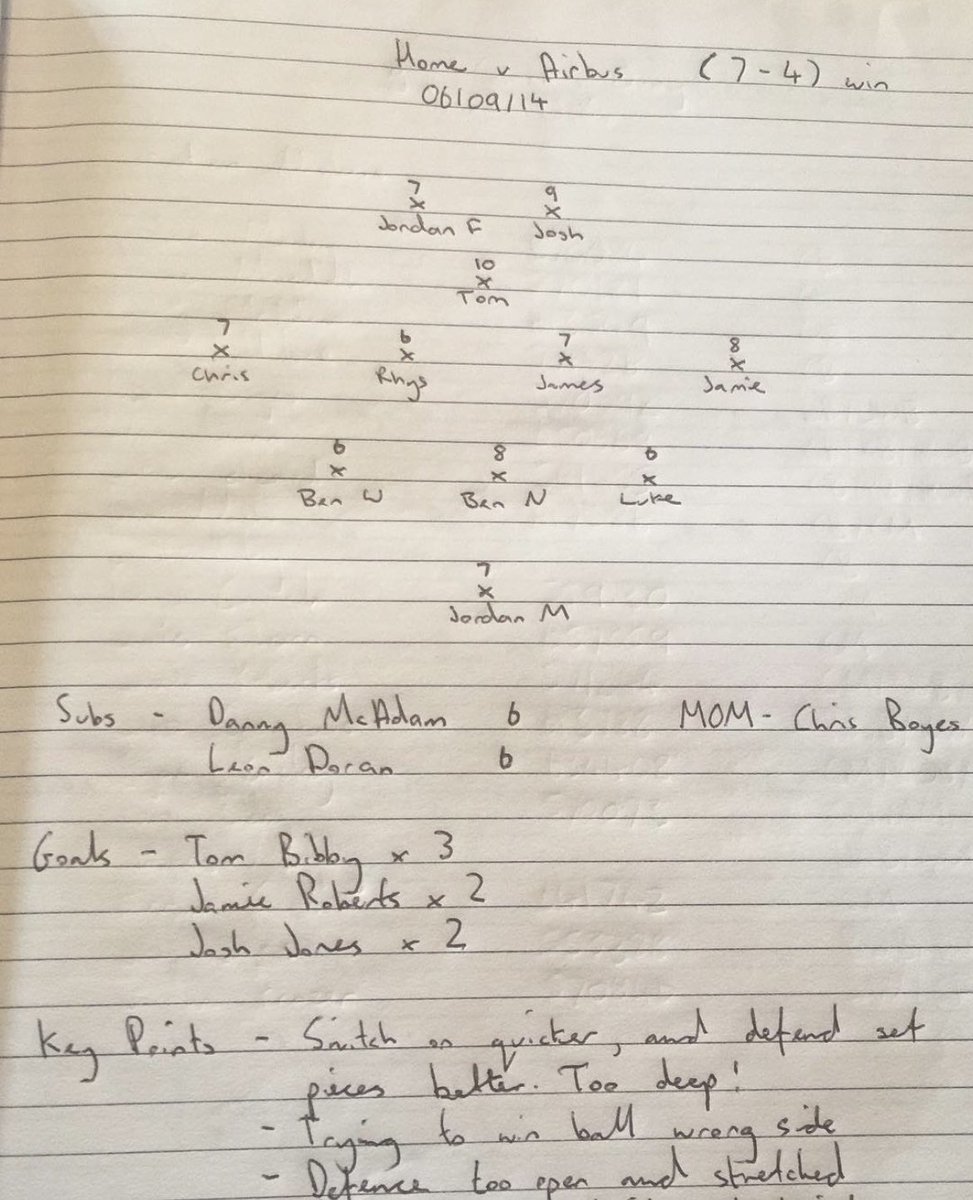 Home v Airbus (7-4) win
06/09/14
7 9
x x
Jordan F Josh
10
x
Tom
7 6 7 8
x x x x
Chris Rhys James Jamie
6 8 6
x x x
Ben W Ben N Luke
7
x
Jordan M
Subs - Danny McAdam 6 MOM - Chris Boyes
Leon Doran 6
Goals - Tom Bibby x 3
Jamie Roberts x 2
Josh Jones x 2
Key Points - Switch on quicker, and defend set
pieces better. Too deep!
- Trying to win ball wrong side
- Defence too open and stretched